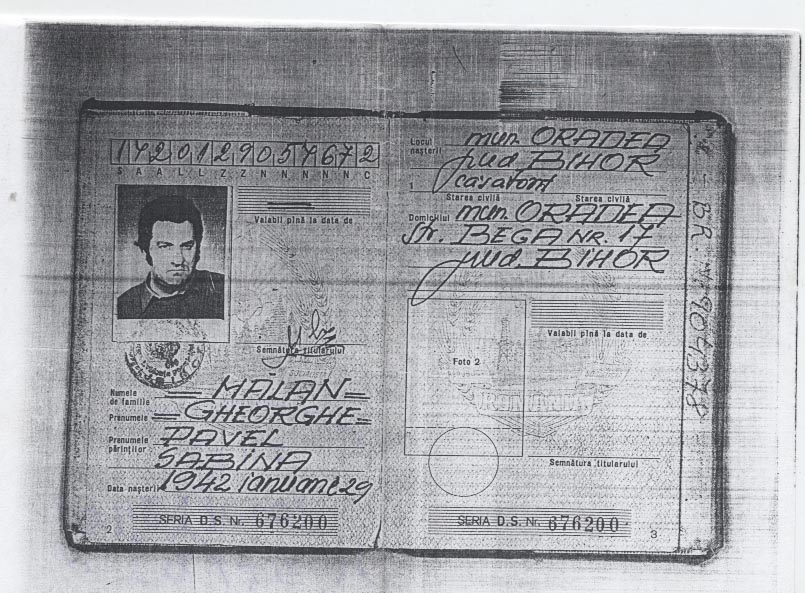 1 7 2 0 1 2 9 0 5 7 6 7 2
S A A L L Z Z N N N N N C
Valabil pînă la data de
Semnătura titularului
Numele de familie = MALAN =
Prenumele = GHEORGHE =
Prenumele părinților PAVEL
SABINA
Data nașterii 1942 ianuarie 29
SERIA D.S. Nr. 676200
2
Locul nașterii mun. ORADEA
jud. BIHOR
1 casatorit
Starea civilă Starea civilă
Domiciliul mun. ORADEA
Str. BEGA NR. 17
jud. BIHOR
Valabil pînă la data de
Foto 2
Semnătura titularului
SERIA D.S. Nr. 676200
3